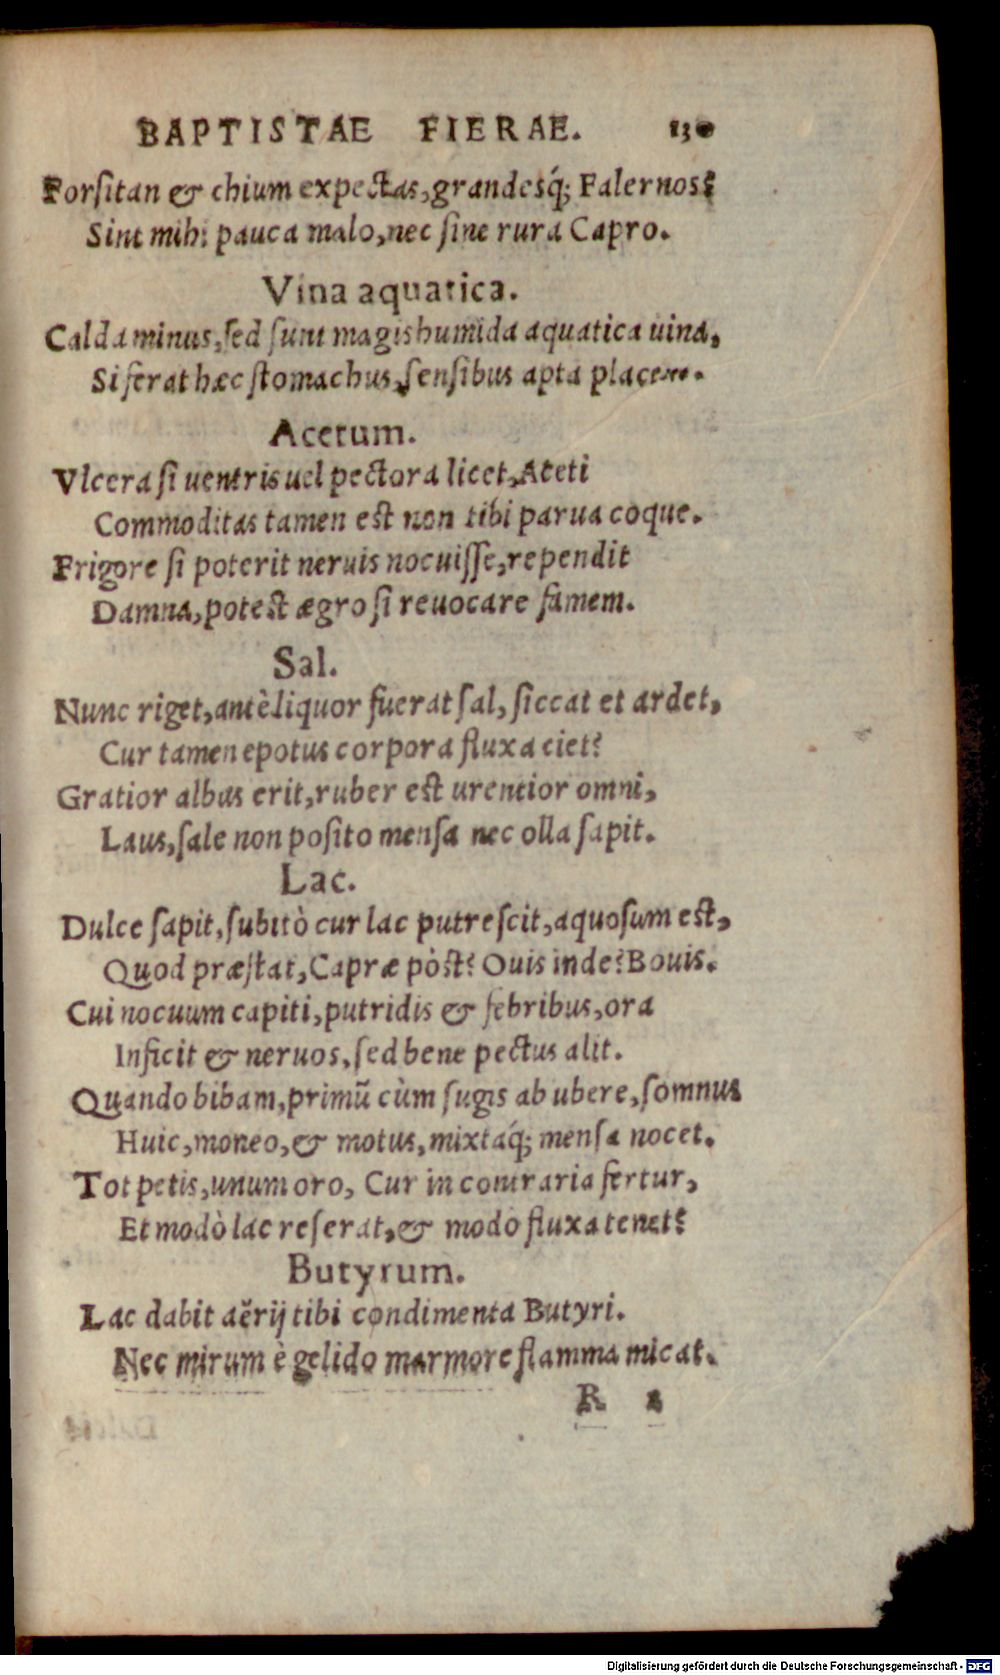 BAPTISTAE FIERAE. 130
Forſitan & chium expectas, grandesq́; Falernos?
Sint mihi pauca malo, nec ſine rura Capro.
Vina aquatica.
Calda minus, ſed ſunt magis humida aquatica uina,
Si ferat hæc ſtomachus, ſenſibus apta placent.
Acetum.
Vlcera ſi uentris uel pectora licet, Aceti
Commoditas tamen est non tibi parua coque.
Frigore ſi poterit neruis nocuiſſe, rependit
Damna, potest ægro ſi reuocare famem.
Sal.
Nunc riget, antè liquor fuerat ſal, ſiccat et ardet,
Cur tamen epotus corpora fluxa ciet?
Gratior albus erit, ruber est urentior omni,
Laus, ſale non poſito menſa nec olla ſapit.
Lac.
Dulce ſapit, ſubitò cur lac putreſcit, aquoſum est,
Quod præſtat, Capræ pòst? Ouis inde? Bouis.
Cui nocuum capiti, putridis & febribus, ora
Inficit & neruos, ſed bene pectus alit.
Quando bibam, primũ cùm ſugis ab ubere, ſomnus
Huic, moneo, & motus, mixtaq́; menſa nocet.
Tot petis, unum oro, Cur in contraria fertur,
Et modò lac reſerat, & modo fluxa tenet?
Butyrum.
Lac dabit aërij tibi condimenta Butyri.
Nec mirum è gelido marmore flamma micat.
R 2
Digitalisierung gefördert durch die Deutsche Forschungsgemeinschaft - DFG